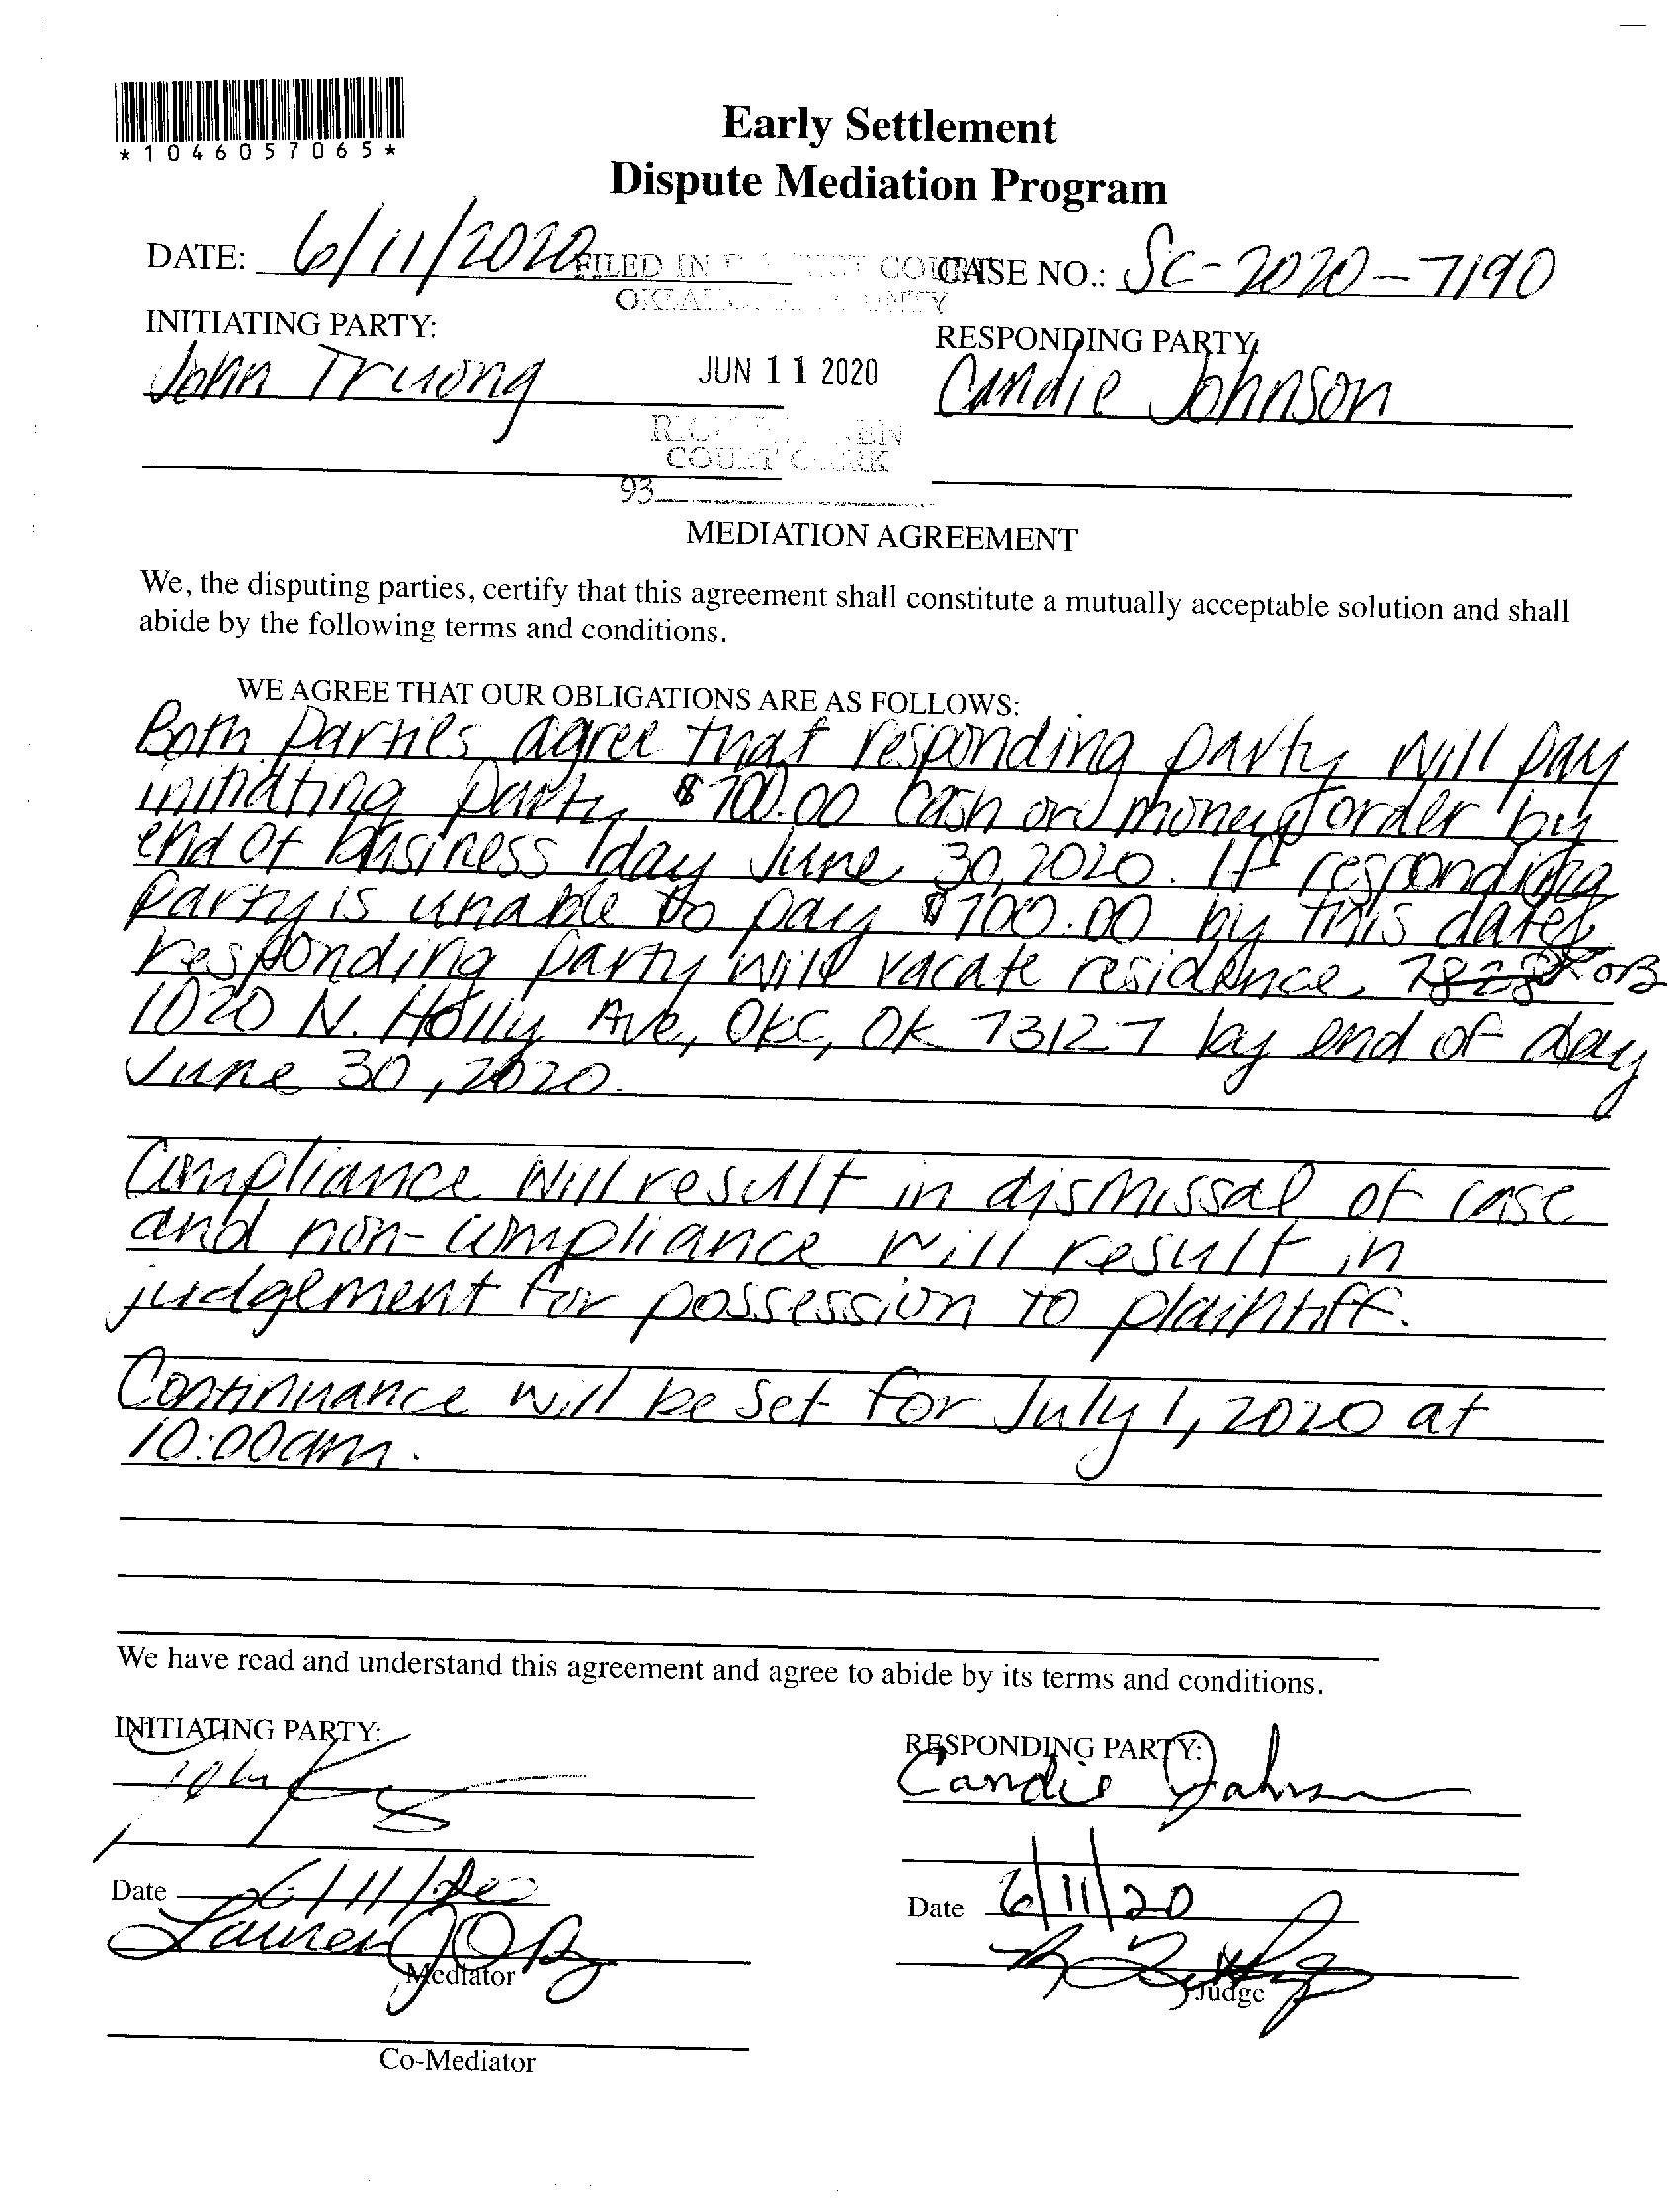 *1046057065*
Early Settlement
Dispute Mediation Program
DATE: 6/11/2020
FILED IN COURT
CASE NO.: SC-2020-7190
INITIATING PARTY:
RESPONDING PARTY
John Truong
JUN 11 2020
Candie Johnson
COURT CLERK
93
MEDIATION AGREEMENT
We, the disputing parties, certify that this agreement shall constitute a mutually acceptable solution and shall
abide by the following terms and conditions.
WE AGREE THAT OUR OBLIGATIONS ARE AS FOLLOWS:
Both parties agree that responding party will pay
initiating party $700.00 cash or money order by
end of business day June 30, 2020. If responding
party is unable to pay $700.00 by this date,
responding party will vacate residence,
1020 N. Holly Ave, OKC, OK 73127 by end of day
June 30, 2020.
Compliance will result in dismissal of case
and non-compliance will result in
judgement for possession to plaintiff.
Continuance will be set for July 1, 2020 at
10:00am.
We have read and understand this agreement and agree to abide by its terms and conditions.
INITIATING PARTY:
RESPONDING PARTY:
Candie Johnson
Date 6/11/20
Date 6/11/20
Lauren
Mediator
Judge
Co-Mediator